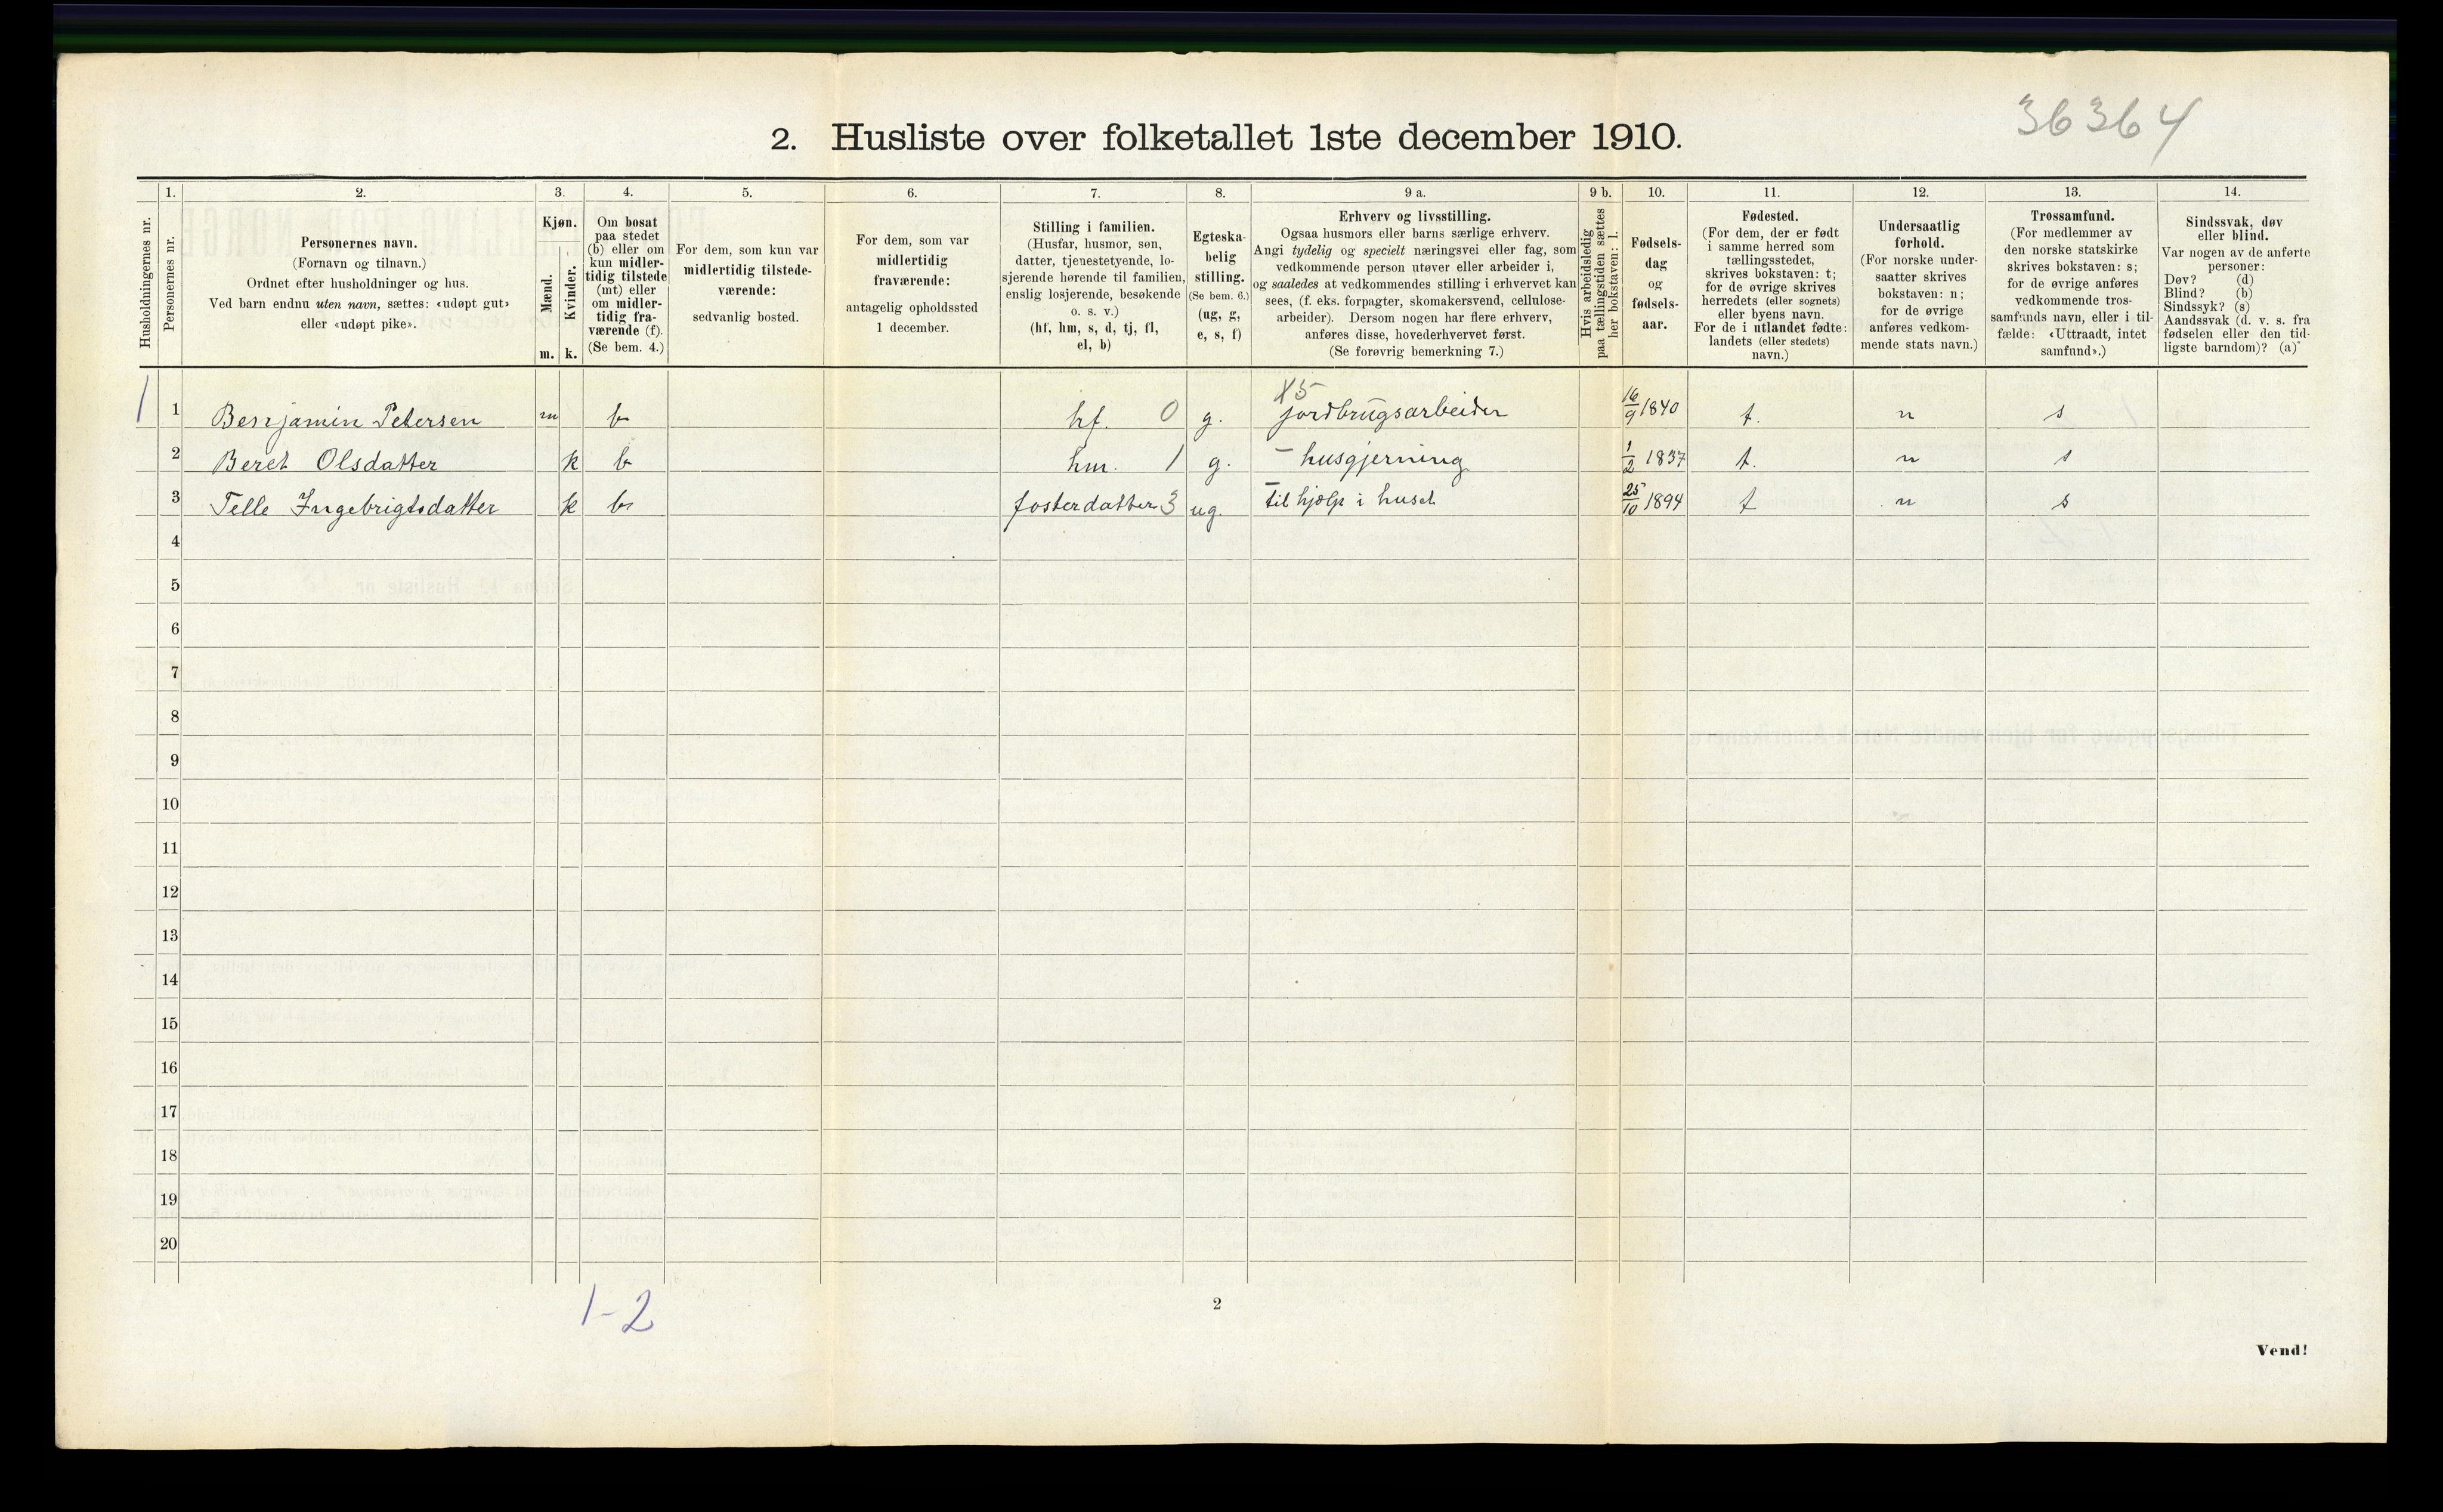 36364
2. Husliste over folketallet 1ste december 1910.
Husholdningernes nr.
1.
Personernes nr.
2.
Personernes navn.
(Fornavn og tilnavn.)
Ordnet efter husholdninger og hus.
Ved barn endnu uten navn, sættes: «udøpt gut»
eller «udøpt pike».
3.
Kjøn.
Mænd.
Kvinder.
m. k.
4.
Om bosat
paa stedet
(b) eller om
kun midler-
tidig tilstede
(mt) eller
om midler-
tidig fra-
værende (f).
(Se bem. 4.)
5.
For dem, som kun var
midlertidig tilstede-
værende:
sedvanlig bosted.
6.
For dem, som var
midlertidig
fraværende:
antagelig opholdssted
1 december.
7.
Stilling i familien.
(Husfar, husmor, søn,
datter, tjenestetyende, lo-
sjerende hørende til familien,
enslig losjerende, besøkende
o. s. v.)
(hf, hm, s, d, tj, fl,
el, b)
8.
Egteska-
belig
stilling.
(Se bem. 6.)
(ug, g,
e, s, f)
9 a.
Erhverv og livsstilling.
Ogsaa husmors eller barns særlige erhverv.
Angi tydelig og specielt næringsvei eller fag, som
vedkommende person utøver eller arbeider i,
og saaledes at vedkommendes stilling i erhvervet kan
sees, (f. eks. forpagter, skomakersvend, cellulose-
arbeider). Dersom nogen har flere erhverv,
anføres disse, hovederhvervet først.
(Se forøvrig bemerkning 7.)
9 b.
Hvis arbeidsledig
paa tællingstiden sættes
her bokstaven: l.
10.
Fødsels-
dag
og
fødsels-
aar.
11.
Fødested.
(For dem, der er født
i samme herred som
tællingsstedet,
skrives bokstaven: t;
for de øvrige skrives
herredets (eller sognets)
eller byens navn.
For de i utlandet fødte:
landets (eller stedets)
navn.)
12.
Undersaatlig
forhold.
(For norske under-
saatter skrives
bokstaven: n;
for de øvrige
anføres vedkom-
mende stats navn.)
13.
Trossamfund.
(For medlemmer av
den norske statskirke
skrives bokstaven: s;
for de øvrige anføres
vedkommende tros-
samfunds navn, eller i til-
fælde: «Uttraadt, intet
samfund».)
14.
Sindssvak, døv
eller blind.
Var nogen av de anførte
personer:
Døv? (d)
Blind? (b)
Sindssyk? (s)
Aandssvak (d. v. s. fra
fødselen eller den tid-
ligste barndom)? (a)
X5
1 1 Benjamin Petersen m b hf. 0 g. jordbrugsarbeider 16/9 1840 t. n s
2 Beret Olsdatter k b hm. 1 g. - husgjerning 1/2 1837 t. n s
3 Telle Ingebrigtsdatter k b fosterdatter 3 ug. - til hjælp i huset 25/10 1894 t n s
4
5
6
7
8
9
10
11
12
13
14
15
16
17
18
19
20
1-2
2
Vend!